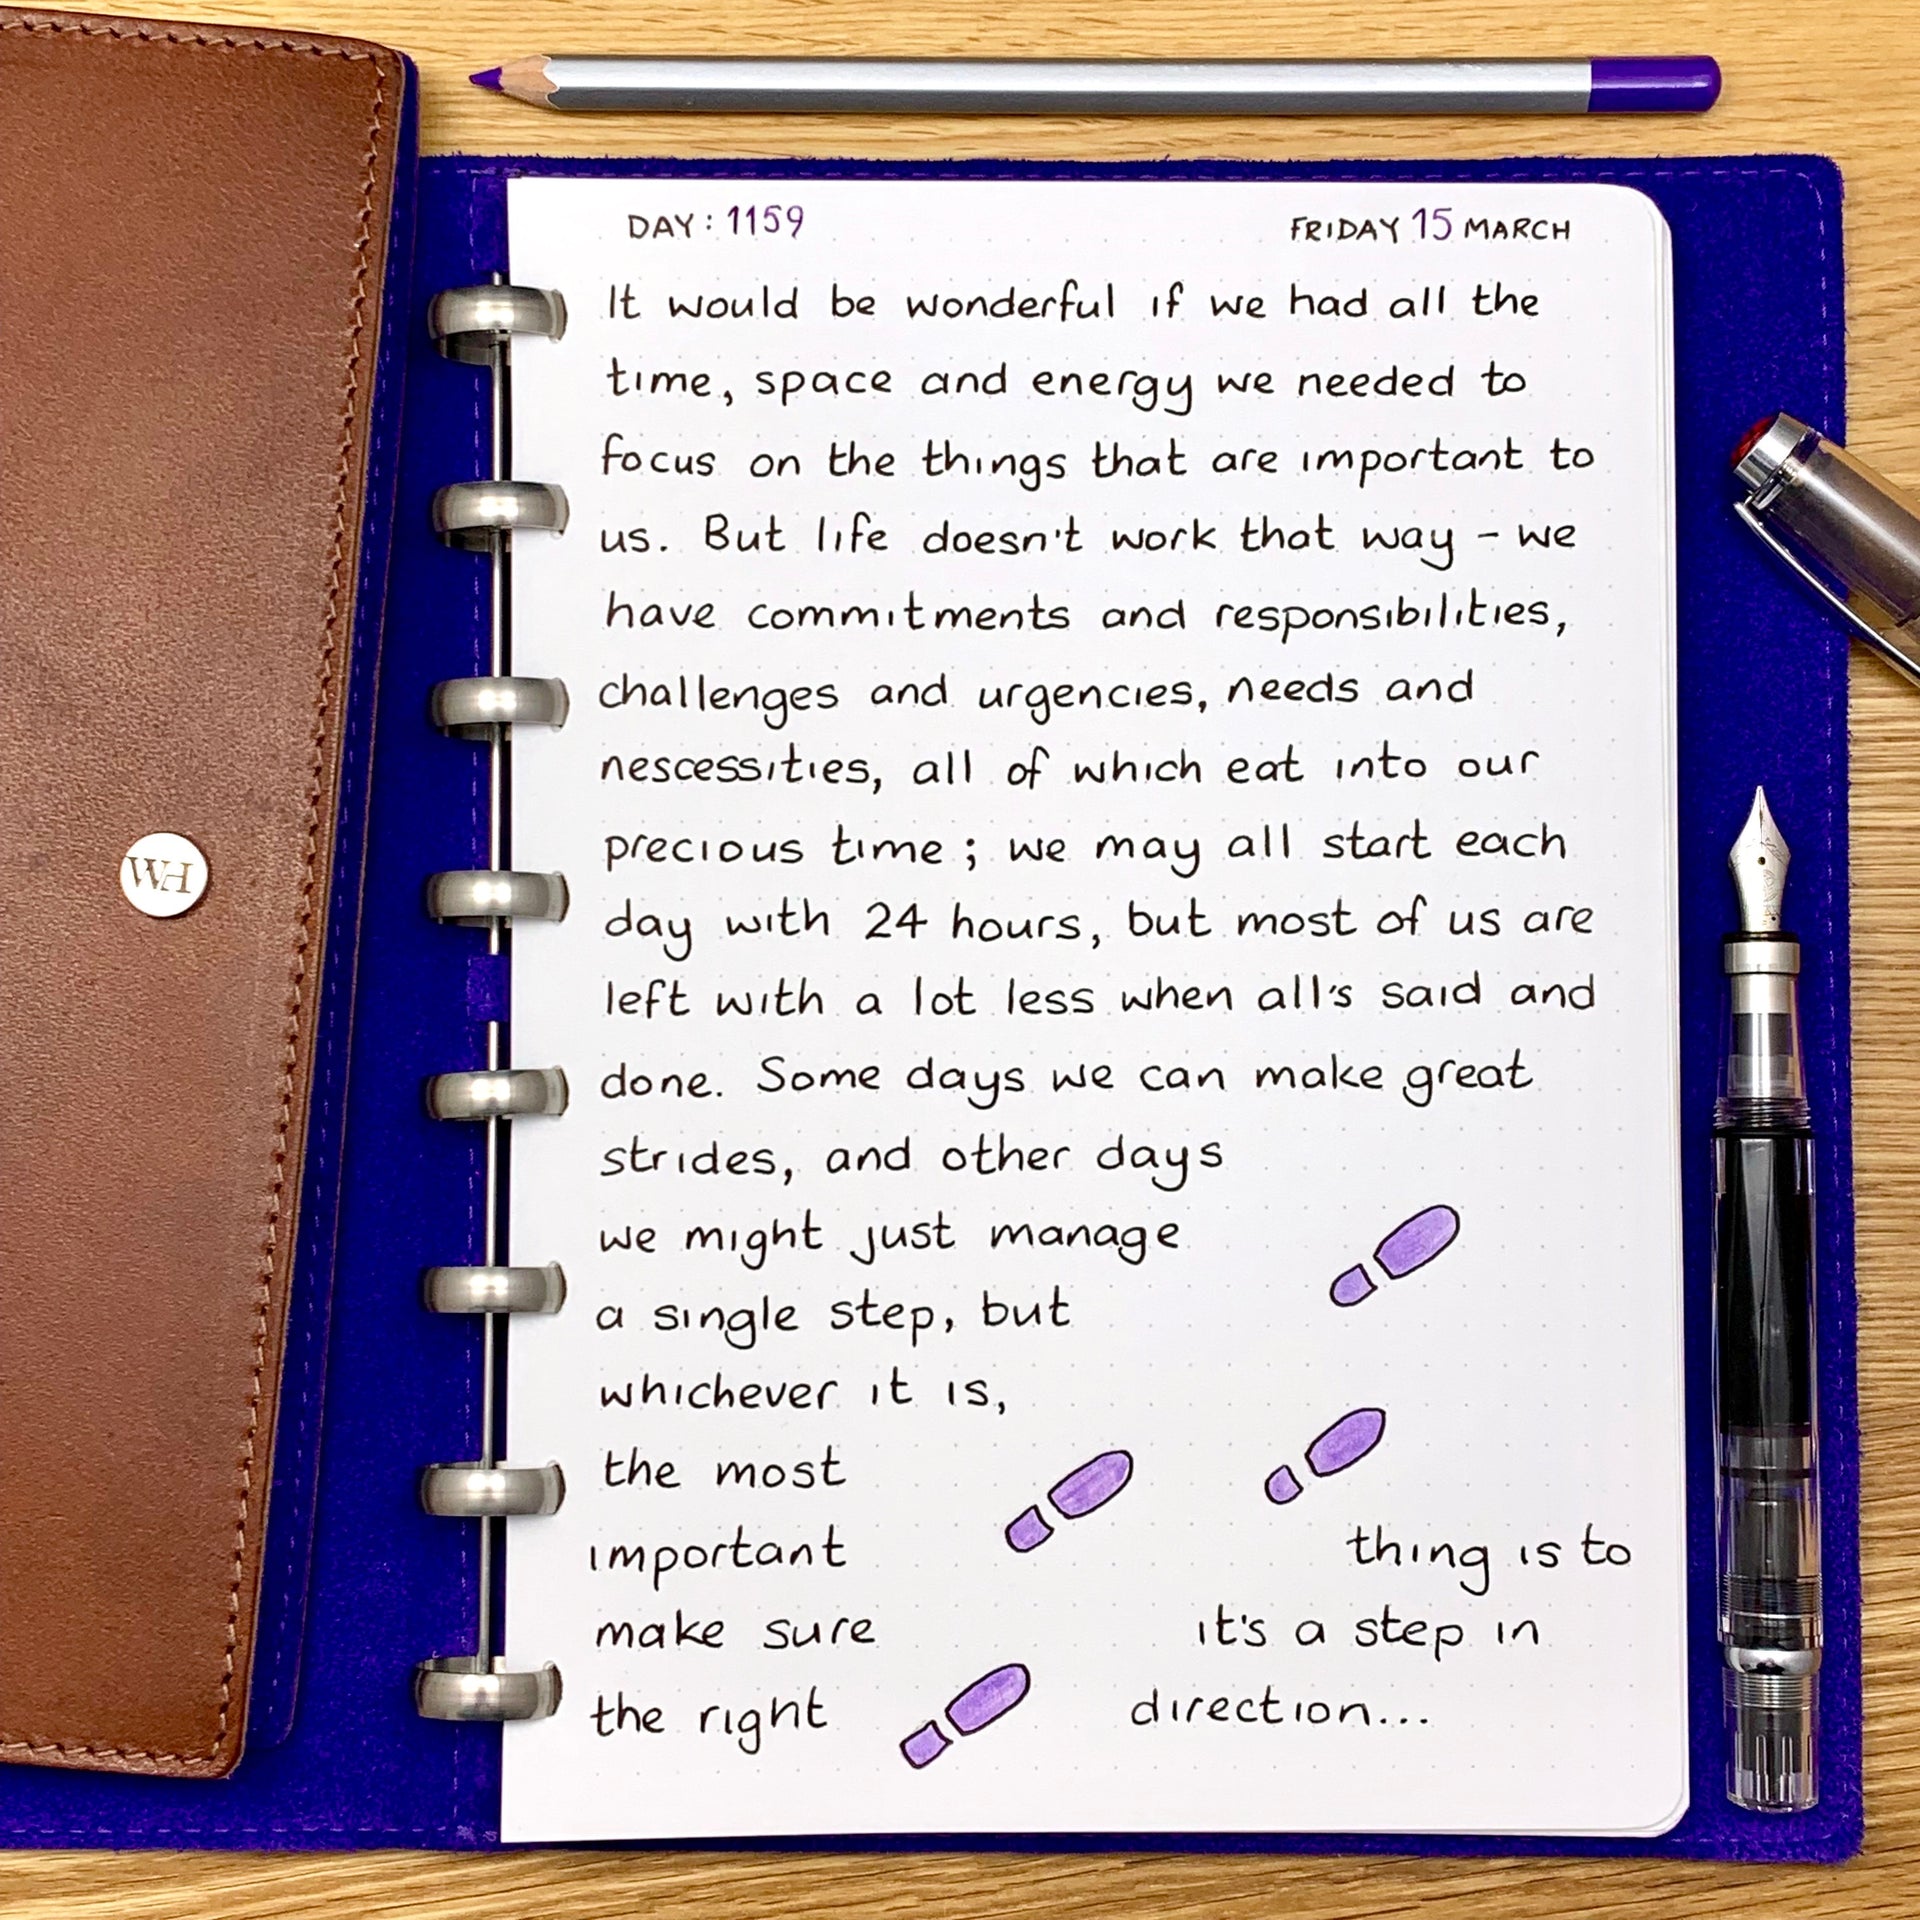 WH
DAY: 1159
FRIDAY 15 MARCH
It would be wonderful if we had all the
time, space and energy we needed to
focus on the things that are important to
us. But life doesn't work that way - we
have commitments and responsibilities,
challenges and urgencies, needs and
nescessities, all of which eat into our
precious time; we may all start each
day with 24 hours, but most of us are
left with a lot less when all's said and
done. Some days we can make great
strides, and other days
we might just manage
a single step, but
whichever it is,
the most
important thing is to
make sure it's a step in
the right direction...